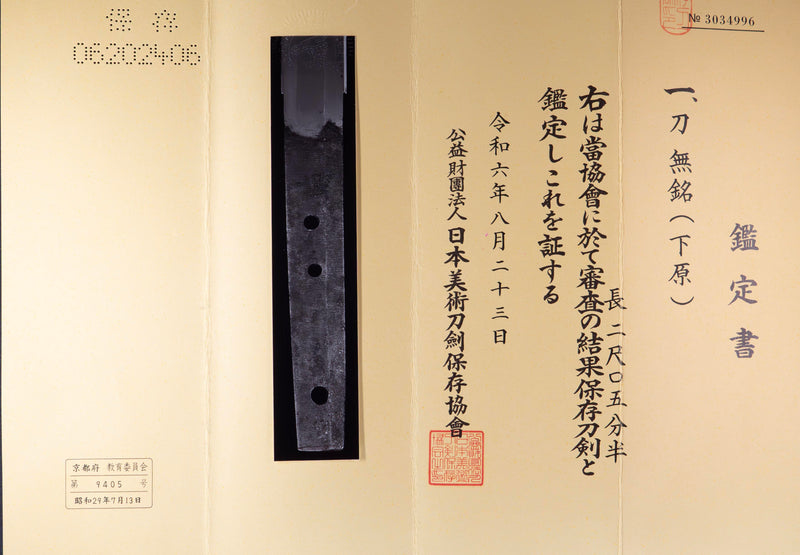 № 3034996
鑑定書
一、刀 無銘（下原）
長二尺〇五分半
右は當協會に於て審査の結果保存刀剣と
鑑定しこれを証する
令和六年八月二十三日
公益財團法人日本美術刀劍保存協會
保存
06202406
京都府 教育委員会
第 9405 号
昭和29年7月13日